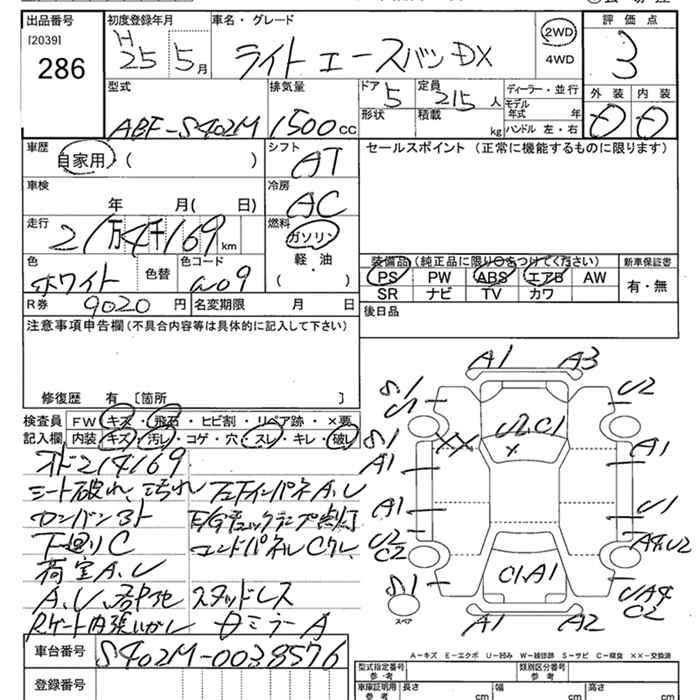 出品番号
[2039]
286
初度登録年月
H
25 5月
車名・グレード
ライトエースバンDX
2WD
4WD
評価点
3
型式
ABF-S402M
排気量
1500cc
ドア
5
形状
定員
2/5人
積載
kg
ディーラー・並行
モデル年式 年
ハンドル 左・右
外装 内装
車歴
自家用・( )
シフト
AT
セールスポイント (正常に機能するものに限ります)
車検
年 月( 日)
冷房
AC
走行
21万4千169km
燃料
ガソリン
軽・油
( )
色
ホワイト
色替
色コード
W09
装備品(純正品に限り○をつけてください)
PS PW ABS エアB AW
SR ナビ TV カワ
新車保証書
有・無
R券 9020円
名変期限 月 日
後日品
注意事項申告欄(不具合内容等は具体的に記入して下さい)
修復歴 有 [箇所 ]
検査員記入欄
FW キズ・飛石・ヒビ割・リペア跡・×要
内装 キズ・汚レ・コゲ・穴・スレ・キレ・破レ
オド214169
シート破れ、汚れ
カンバンあト
下廻りC
荷室A.U
A.U.各中他
Rゲート内張いかし
左下インパネA.U
E/Gチェックランプ点灯
コンドパネルCクレ
スタッドレス
A1 A3
S.1
U1
U2
S1
XX
U2.C1
×
A1
A1
A1
U1
U2
C2
A4.U2
C1.A1
S1
スペア
UA4
C2
A1 A2
A-キズ E-エクボ U-凹み W-補修跡 S-サビ C-腐食 ××-交換済
車台番号
S402M-0038576
登録番号
型式指定番号
参考
類別区分番号
参考
車庫証明用
参考
長さ cm
幅 cm
高さ cm